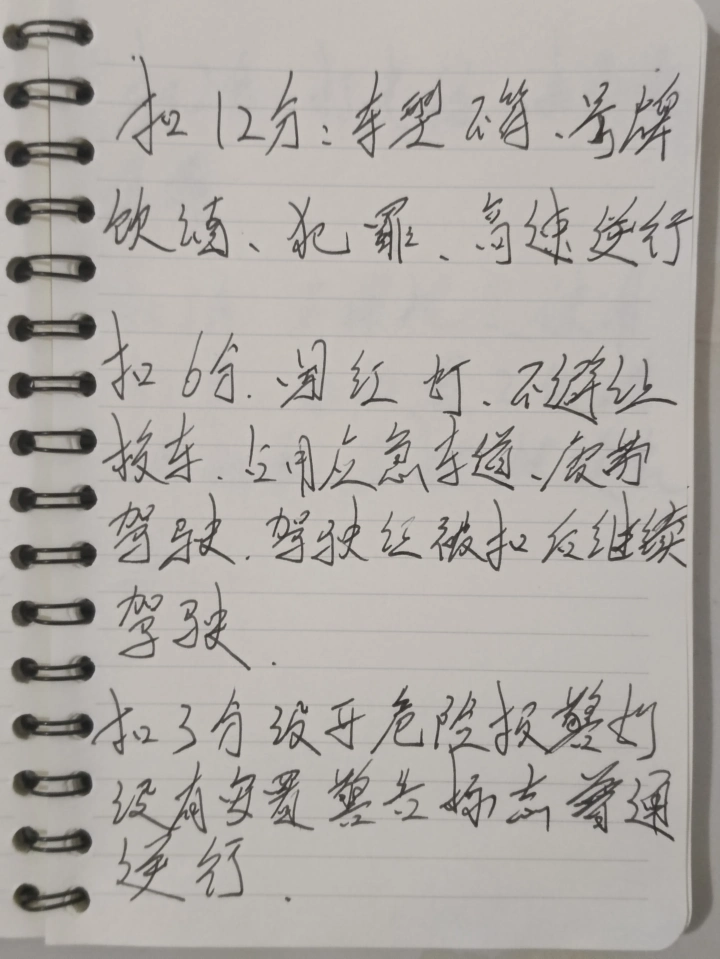 扣12分：车型不符、号牌
饮酒、犯罪、高速逆行
扣6分.闯红灯、不避让
校车、占用应急车道、疲劳
驾驶.驾驶证被扣后继续
驾驶.
扣3分没开危险报警灯
没有安置警告标志普通
逆行.